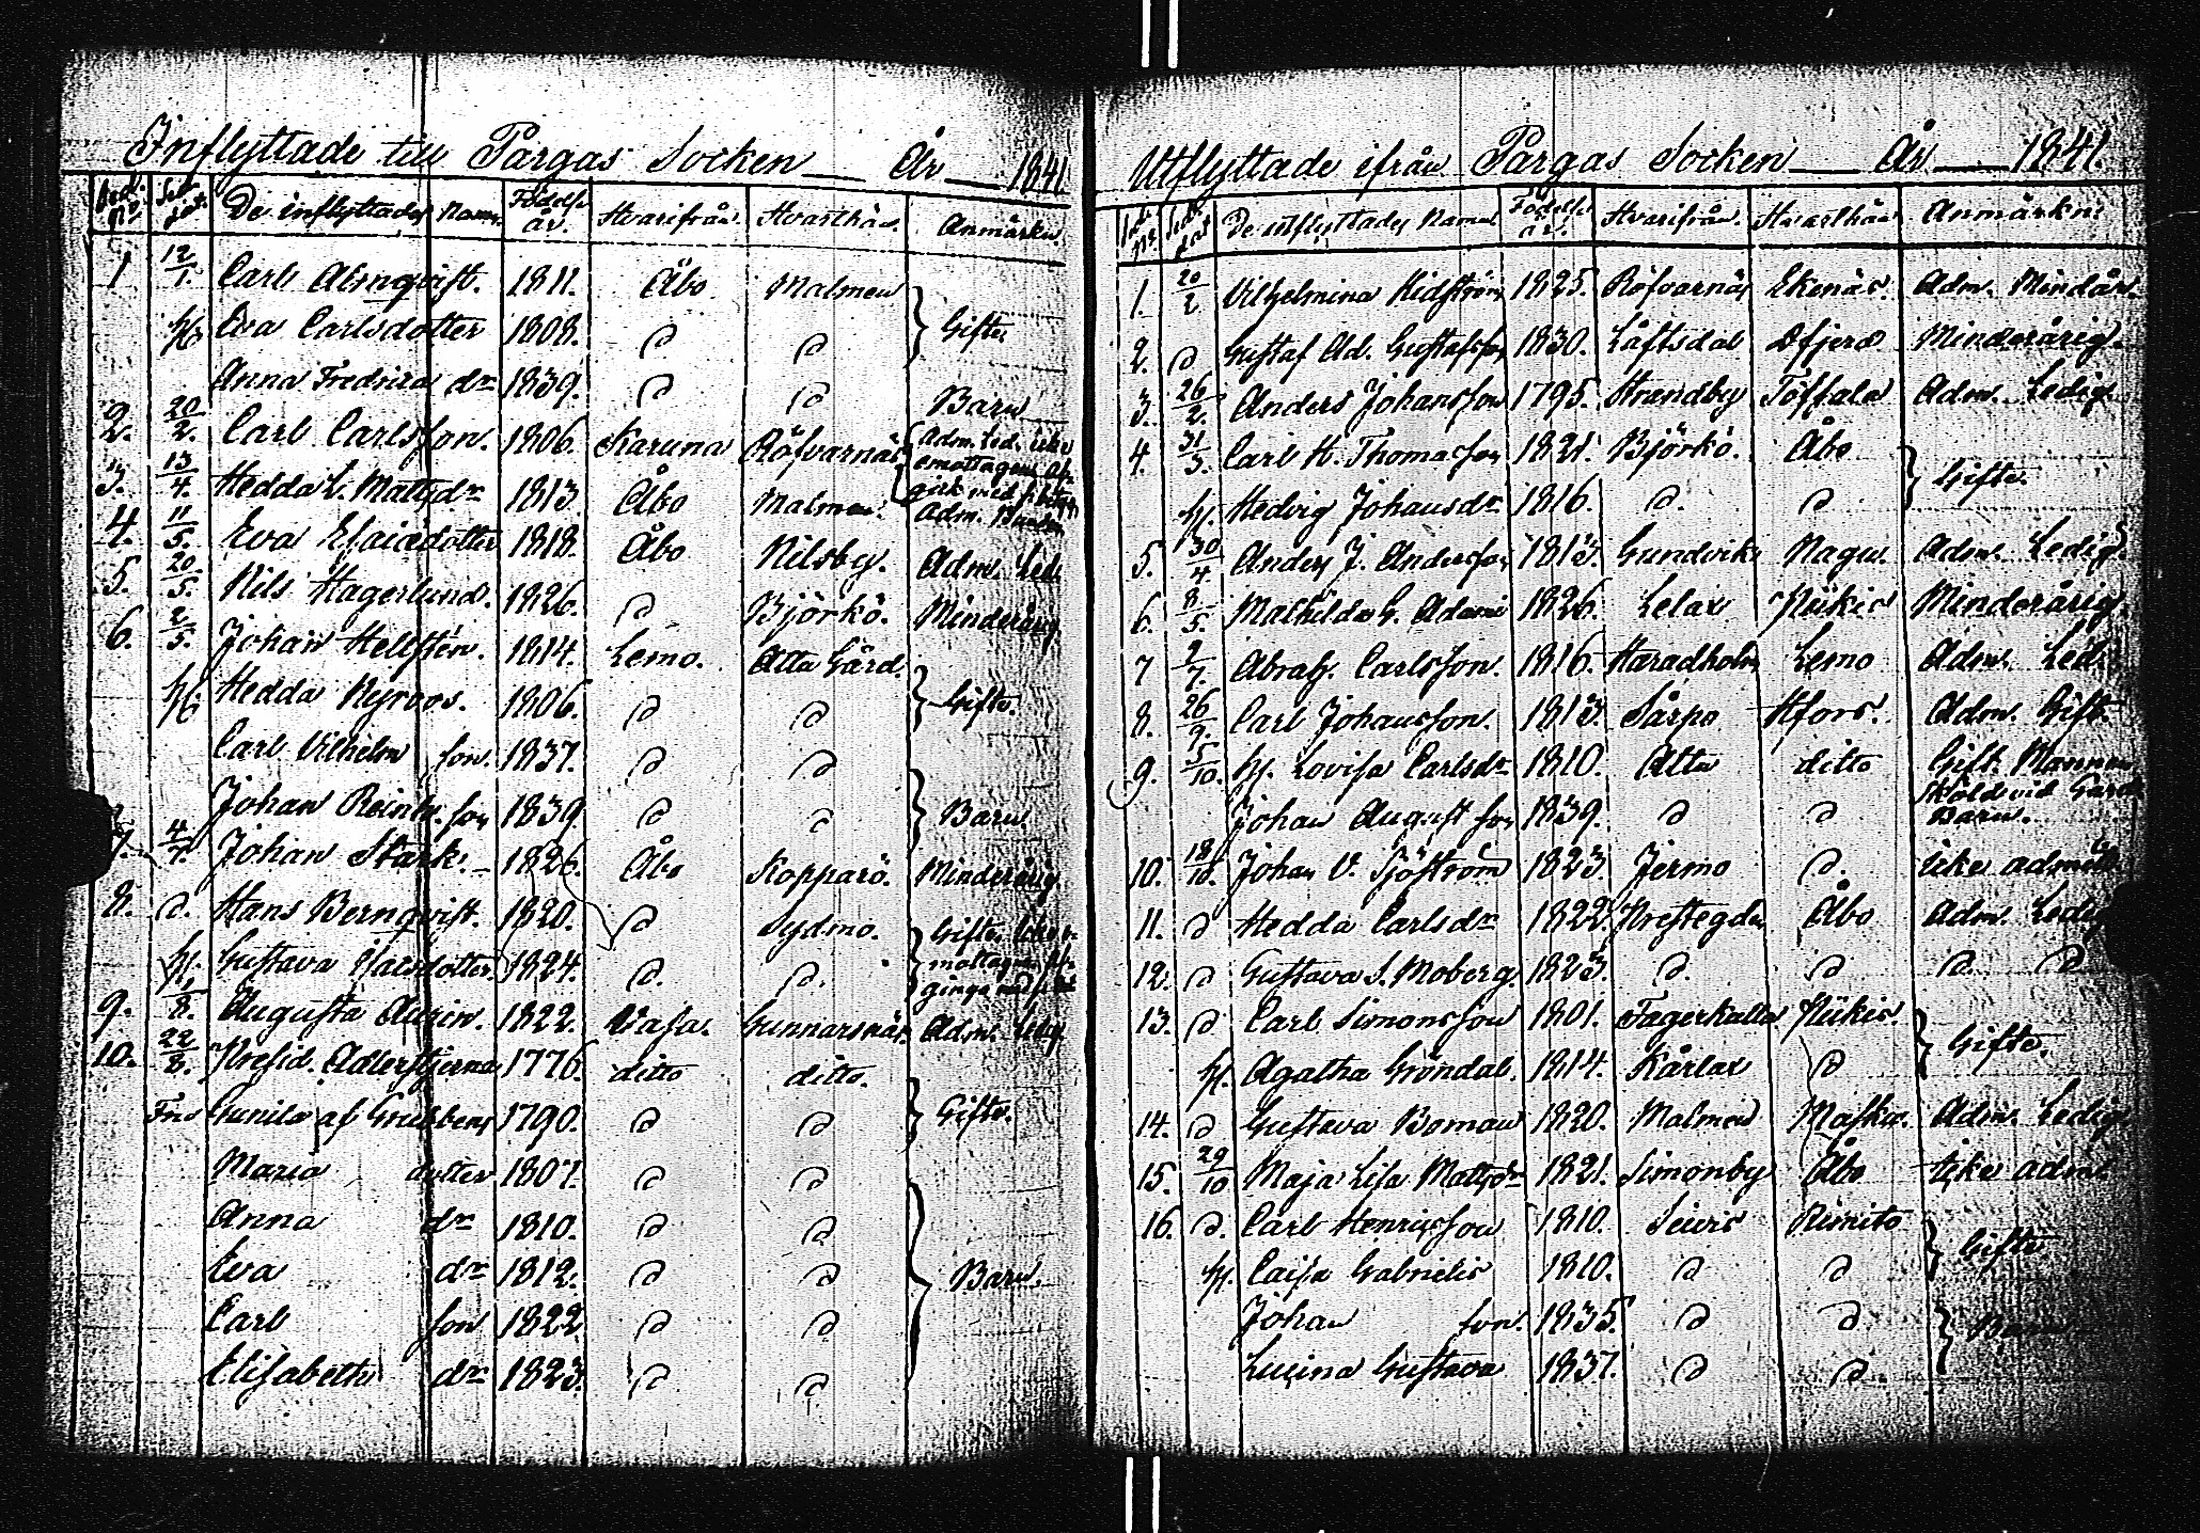 Inflyttade till Pargas Socken — År — 1841
De inflyttades Namn Födelse år. Hvarifrån Hvarthän. Anmärkn.
1 12/1. Carl Almqvist. 1811. Åbo Malmen
h. Eva Carlsdotter 1808. d d } Gifte.
Anna Fredrica dr 1839. d d Barn
2. 20/2. Carl Carlsson. 1806. Karuna Röfvarnäs { Adm. Led. icke
emottagen
3. 13/4. Hedda L. Mattsdr 1813 Åbo Malmen.
4. 11/5. Eva Esaiedotter 1818. Åbo Nilsby. Adm. Led.
5. 20/5. Nils Hagerlund. 1826. d Björkö. Minderårig.
6. 2/5. Johan Hellstén. 1814. Lemo. Atta Gård.
h. Hedda Nyroos. 1806. d d } Gifte.
Carl Vilhelm son. 1837. d d
Johan Reinh. son 1839 d d } Barn.
7. 4/7. Johan Stark. 1826. Åbo Kopparö. Minderårig.
8. d. Hans Bernqvist. 1820. d Sydmo. Gifte,
h. Gustava Isacsdotter. 1824. d. d.
9. 1/8. Augusta Aurin. 1822. Vasa. Gunnarsnäs. Adm. Ledig
10. 22/8. Presid. Adlerstjerna 1776. ditto ditto.
Fru Gunila af Grubbens 1790. d d } Gifte.
Maria dotter 1807. d d
Anna dr 1810. d d
Eva dr 1812. d d } Barn.
Carl son 1822 d d
Elisabeth dr 1823. d d
Utflyttade ifrån Pargas Socken — År — 1841.
De utflyttades Namn Födelse år. Hvarifrån. Hvarthän Anmärkn:
1. 20/2 Vilhelmina Hidström 1825. Röfvarnäs Ekenäs. Adm. Mindår.
2. d Gustaf Ad. Gustafsson 1830. Låftsdal Minderårig.
3. 26/2. Anders Johansson 1795. Strandby Töffala Adm. Ledig.
4. 31/3. Carl H. Thomasson 1821. Björkö. Åbo
h. Hedvig Johansdr 1816. d. d } Gifte.
5. 30/4 Anders J. Andersson 1813. Gundvik Nagu. Adm. Ledig.
6. 8/5. Mathilda G. Adami 1826. Lelax Piikis Minderårig.
7 2/7. Abrah. Carlsson. 1816. Haradholm Lemo Adm. Led.
8. 26/9. Carl Johansson. 1813. Sårpo Hfors. Adm. Gift.
9. 5/10. h. Lovisa Carlsdr 1810. Atta ditto Gift. Mannen
Sköld vid Gard.
Johan August son 1839. d d Barn.
10. 18/10. Johan V. Sjöström 1823. Jermo d. icke adm.
11. d Hedda Carlsdr 1822. Prestegden Åbo Adm. Ledig
12. d Gustava S. Moberg. 1823. d. d d. d
13. d Carl Simonsson 1801. Fagerkulla Piikis.
h. Agatha Gröndal. 1814. Kårlax d } Gifte.
14. d Gustava Boman 1820. Malmen Masku. Adm. Ledig.
15. 29/10 Maja Lisa Mattsdr 1821. Simonby Åbo icke adm.
16. d. Carl Henricsson 1810. Rimito
h. Caisa Gabriels 1810. d d } Gifte.
Johan son. 1835. d d
Lucina Gustava 1837. d d. } Barn